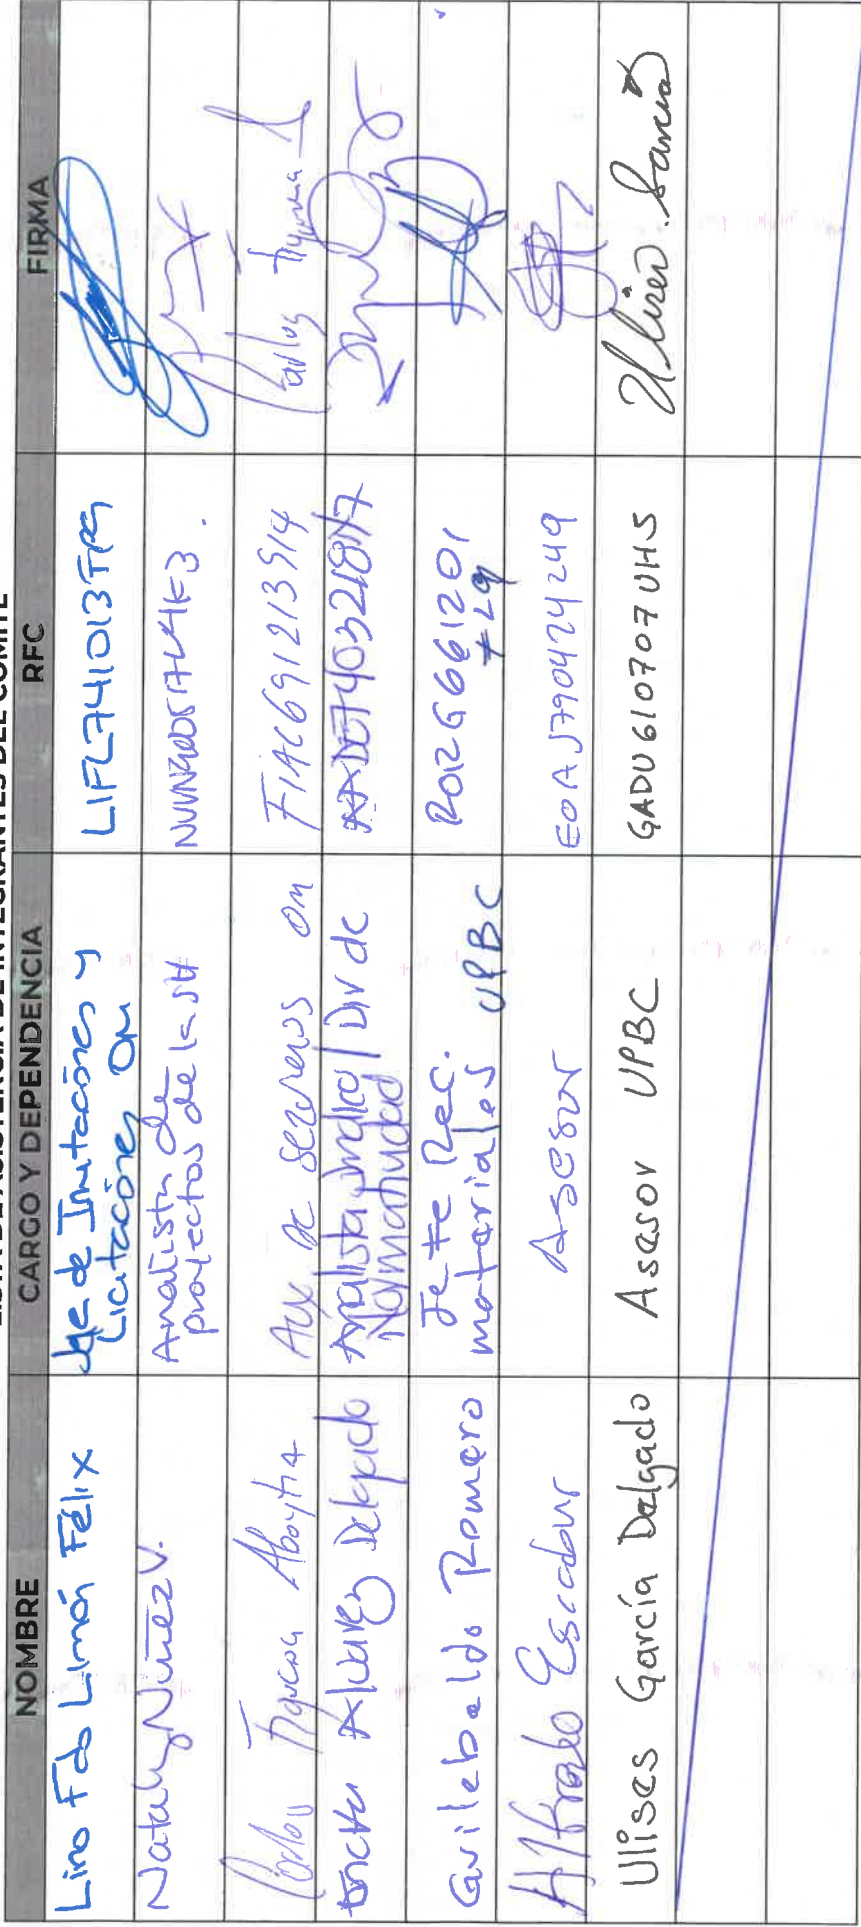 LISTA DE ASISTENCIA DE INTEGRANTES DEL COMITÉ
NOMBRE CARGO Y DEPENDENCIA RFC FIRMA
Lino Fdo Limón Félix Jefe de Invitaciones y
Licitaciones OM LIFL741013TR9
Nataly Nuñez V. Analista de
proyectos de la SH
Carlos Figueroa Aboytia Aux de servicios OM FIAC691213 Carlos Figueroa
Alvarez Delgado Analista Jurídico / Div de
Normatividad
Guilebaldo Romero Jefe Rec.
materiales UPBC RORG661201
Alfredo Escobar Asesor EOAJ790424249
Ulises García Delgado Asesor UPBC GADU610707UH5 Ulises García